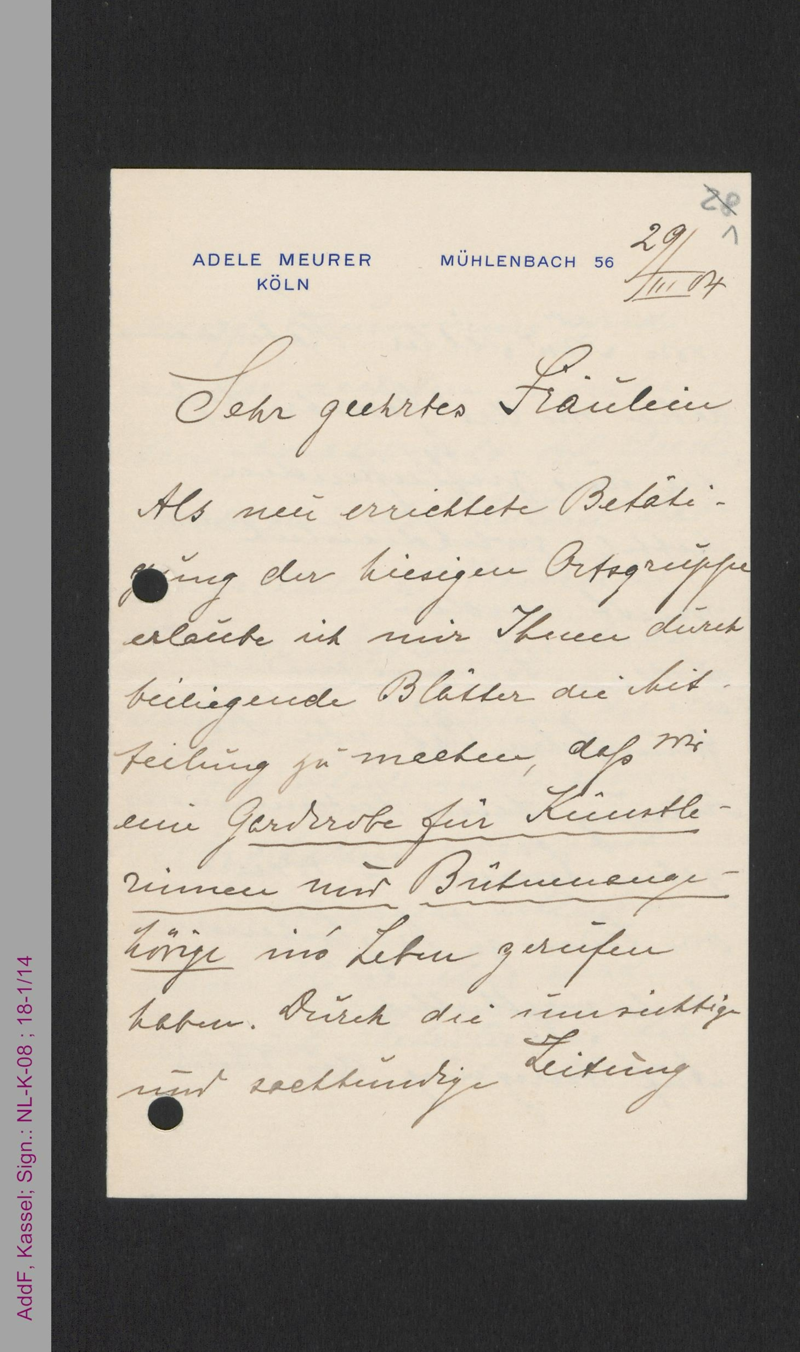 28
ADELE MEURER MÜHLENBACH 56
KÖLN
29/III 04
Sehr geehrtes Fräulein
Als neu errichtete Betäti-
gung der hiesigen Ortsgruppe
erlaube ich mir Ihnen durch
beiliegende Blätter die Mit-
teilung zu machen, daß wir
eine Garderobe für Künstle-
rinnen und Bühnenange-
hörige in's Leben gerufen
haben. Durch die umsichtige
und sachkundige Leitung
AddF, Kassel; Sign.: NL-K-08 ; 18-1/14